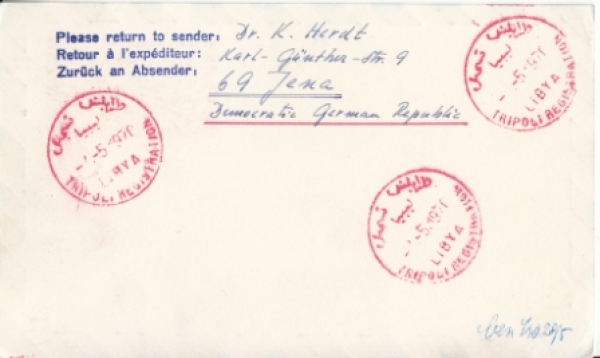 Please return to sender: Dr. K. Herdt
Retour à l'expéditeur: Karl-Günther-Str. 9
Zurück an Absender: 69 Jena
Democratic German Republic
طرابلس تسجيل
ليبيا
-5.1970
LIBYA
TRIPOLI REGISTRATION
طرابلس تسجيل
ليبيا
-5.1970
LIBYA
TRIPOLI REGISTRATION
طرابلس تسجيل
ليبيا
-5.1970
LIBYA
TRIPOLI REGISTRATION